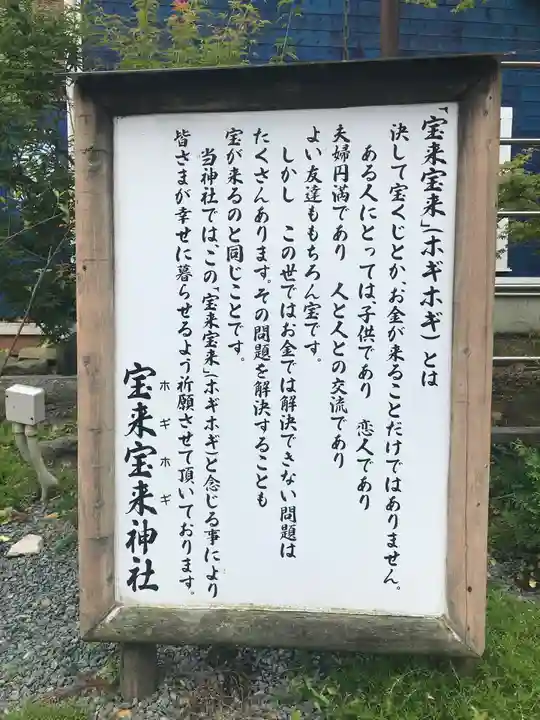 「宝来宝来」（ホギホギ）とは
決して宝くじとか、お金が来ることだけではありません。
ある人にとっては、子供であり　恋人であり
夫婦円満であり　人と人との交流であり
よい友達ももちろん宝です。
しかし　この世ではお金では解決できない問題は
たくさんあります。その問題を解決することも
宝が来るのと同じことです。
当神社では、この「宝来宝来」（ホギホギ）と念じる事により
皆さまが幸せに暮らせるよう祈願させて頂いております。
宝来宝来神社
ホギホギ